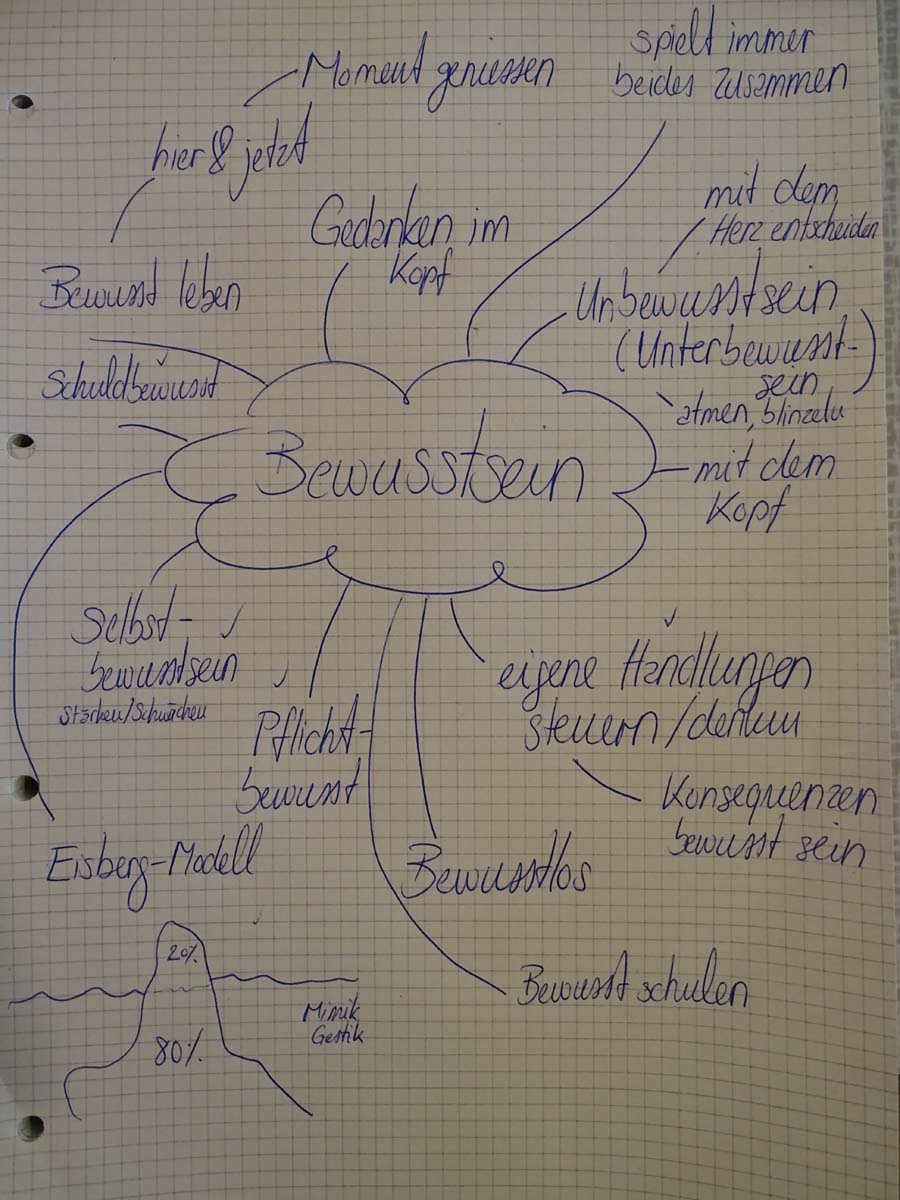 spielt immer
beides zusammen
Moment geniessen
hier & jetzt
mit dem
Herz entscheiden
Gedanken im
Kopf
Bewusst leben
Unbewusstsein
(Unterbewusst-
sein)
atmen, blinzeln
Schuldbewusst
Bewusstsein
mit dem
Kopf
Selbst-
bewusstsein
Stärken/Schwächen
eigene Handlungen
steuern/denken
Pflicht-
bewusst
Konsequenzen
bewusst sein
Eisberg-Modell
Bewusstlos
20%
Bewusst schulen
Mimik
Gestik
80%